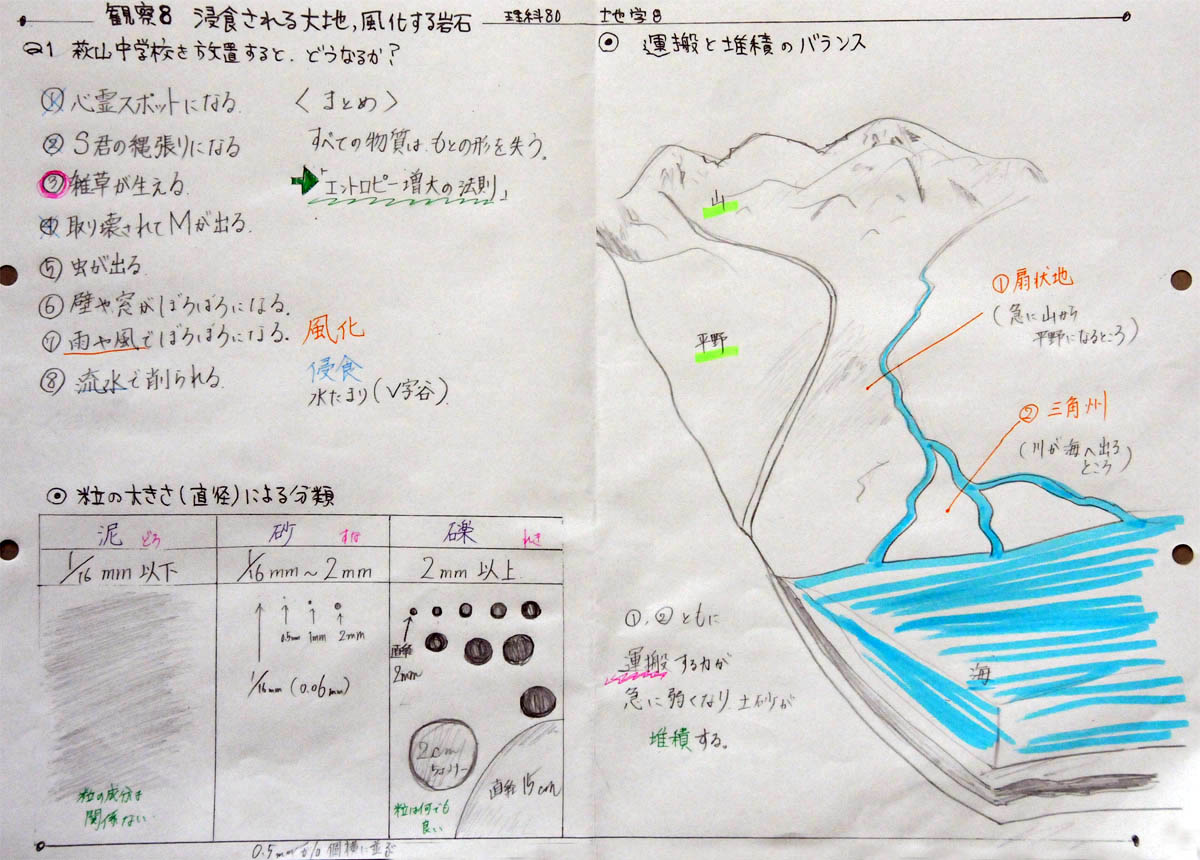 観察8 浸食される大地,風化する岩石
理科80 地学8
Q1 萩山中学校を放置すると、どうなるか？
① 心霊スポットになる.
② S君の縄張りになる
③ 雑草が生える.
④ 取り壊されてMが出る.
⑤ 虫が出る.
⑥ 壁や窓がぼろぼろになる.
⑦ 雨や風でぼろぼろになる. 風化
⑧ 流水で削られる. 侵食
水たまり(V字谷)
〈まとめ〉
すべての物質は、もとの形を失う.
「エントロピー増大の法則」
⦿ 粒の大きさ(直径)による分類
泥 どろ
砂 すな
礫 れき
1/16 mm 以下
1/16 mm ~ 2 mm
2 mm 以上.
0.5mm 1mm 2mm
1/16 mm (0.06 mm)
直径
2mm
2cm
直径15cm
粒の成分は
関係ない.
粒は何でも
良い
0.5mm
⦿ 運搬と堆積のバランス
山
平野
① 扇状地
(急に山から
平野になるところ)
② 三角州
(川が海へ出る
ところ)
海
①,②ともに
運搬する力が
急に弱くなり、土砂が
堆積する。